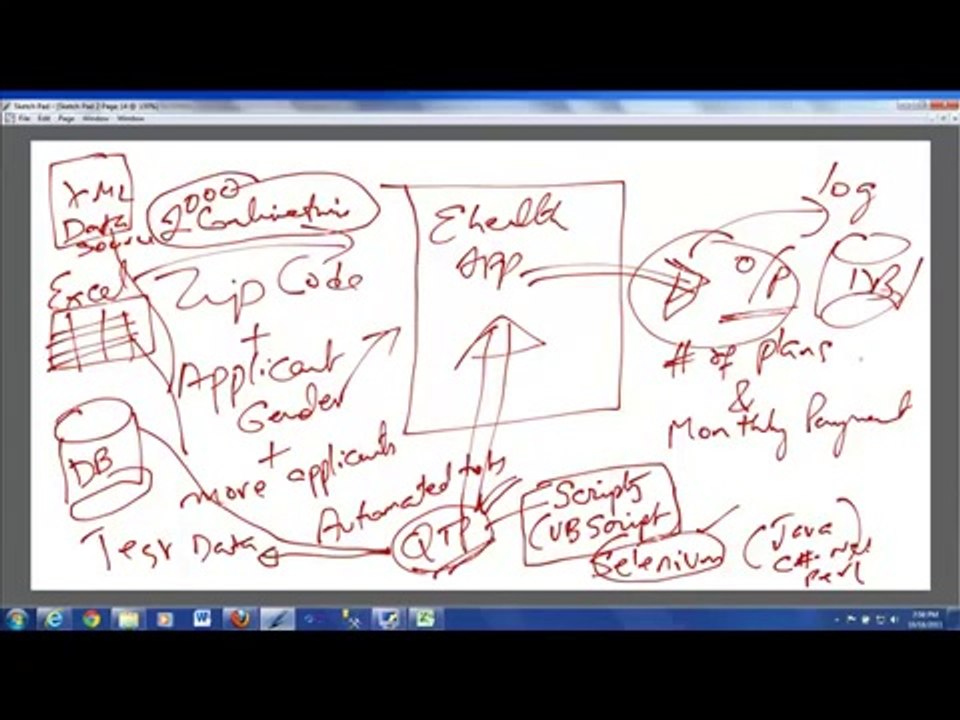 Sketch Pad - [Sketch Pad 2 Page 14 @ 130%]
File Edit Page Window Window
XML
Data
Source
2000
Combinations
Excel
Zip Code
+
Applicant
Gender
+
more applicants
DB
Test Data
Ehealth
App
Automated tests
QTP
- Scripts
(VB Script
Selenium
(Java
C# .net
perl)
O/P
log
DB
# of plans
&
Monthly Payment